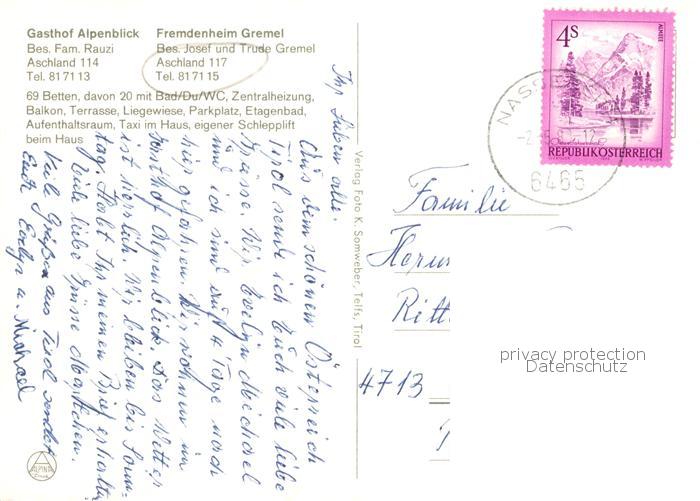 Gasthof Alpenblick
Bes. Fam. Rauzi
Aschland 114
Tel. 81 71 13
Fremdenheim Gremel
Bes. Josef und Trude Gremel
Aschland 117
Tel. 81 71 15
69 Betten, davon 20 mit Bad/Du/WC, Zentralheizung,
Balkon, Terrasse, Liegewiese, Parkplatz, Etagenbad,
Aufenthaltsraum, Taxi im Haus, eigener Schlepplift
beim Haus
Ihr Lieben alle.
Aus dem schönen Österreich
Tirol sende ich Euch viele liebe
Grüsse. Wir, Evelyn Michael
und ich sind auf 4 Tage nach
hier gefahren. Wir wohnen im
Gasthof Alpenblick. Das Wetter
ist herrlich. Wir bleiben bis Sonn-
tag. Habt Ihr meinen Brief erhalten
Viele liebe Grüsse
Viele Grüße aus Tirol sendet
Euch Evelyn u. Michael
Verlag Foto K. Somweber, Telfs, Tirol
ALPINA
4S
ALMSEE
REPUBLIK ÖSTERREICH
NASS
6465
Familie
4713
privacy protection
Datenschutz